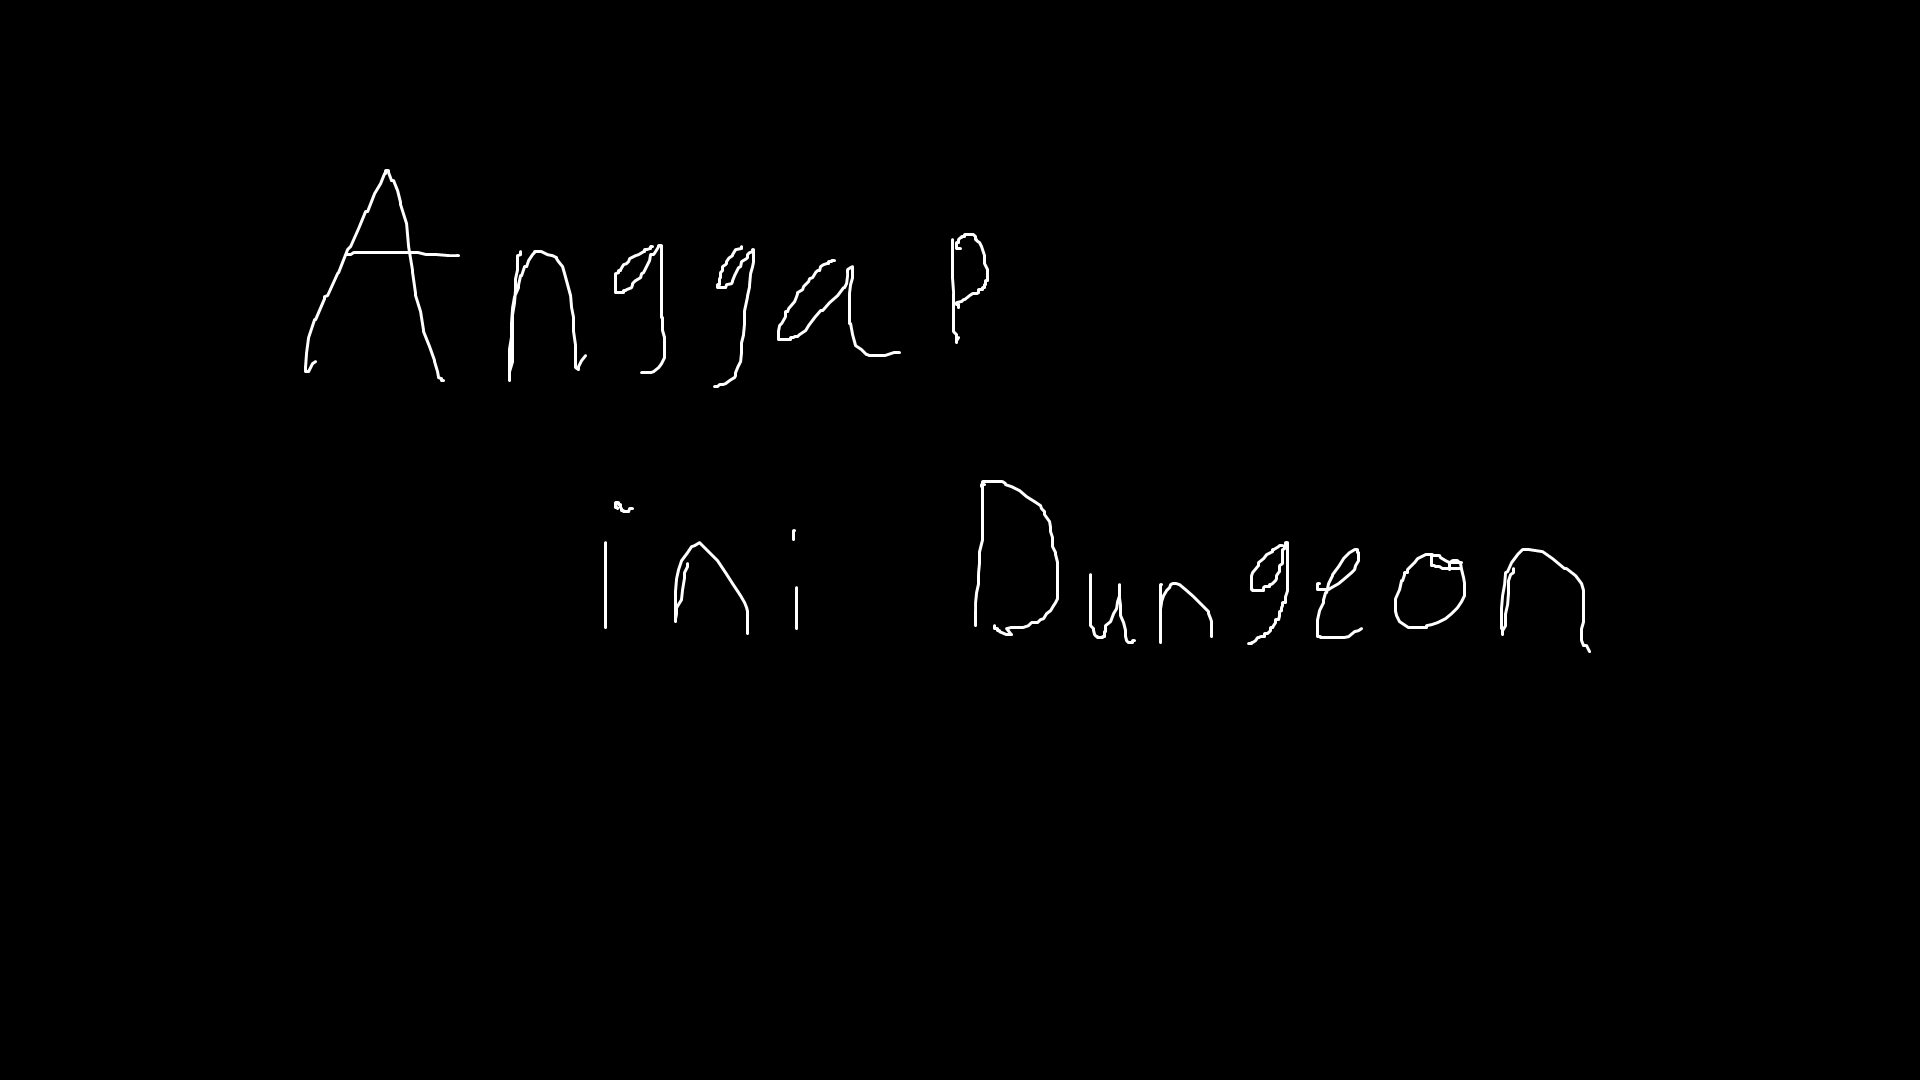 Anggap
ini Dungeon